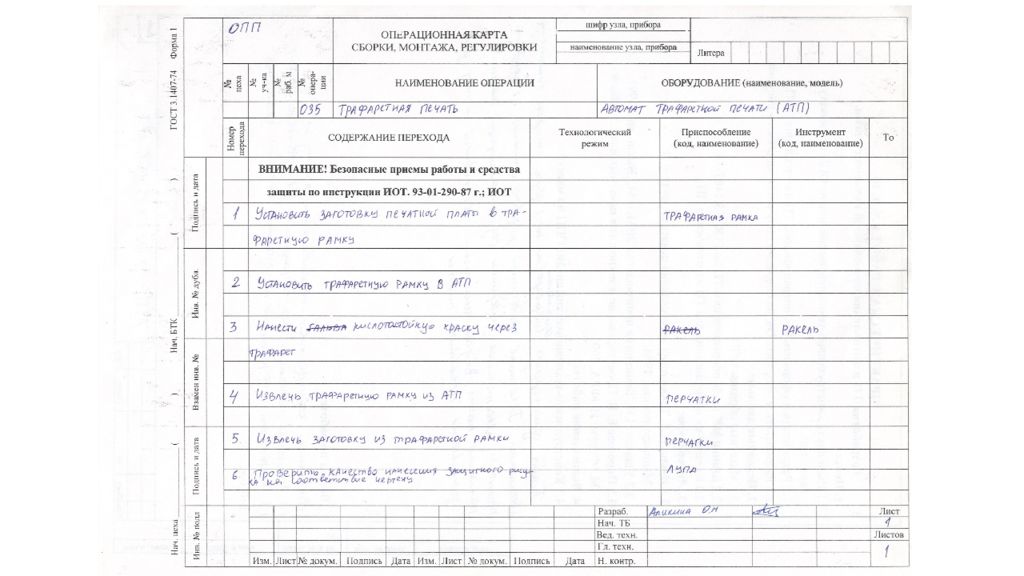 ОПП
ОПЕРАЦИОННАЯ КАРТА
СБОРКИ, МОНТАЖА, РЕГУЛИРОВКИ
шифр узла, прибора
наименование узла, прибора
Литера
№ цеха
№ уч-ка
№ раб. м
№ опера-ции
НАИМЕНОВАНИЕ ОПЕРАЦИИ
ОБОРУДОВАНИЕ (наименование, модель)
035 ТРАФАРЕТНАЯ ПЕЧАТЬ АВТОМАТ ТРАФАРЕТНОЙ ПЕЧАТИ (АТП)
Номер перехода
СОДЕРЖАНИЕ ПЕРЕХОДА
Технологический режим
Приспособление (код, наименование)
Инструмент (код, наименование)
То
ВНИМАНИЕ! Безопасные приемы работы и средства
защиты по инструкции ИОТ. 93-01-290-87 г.; ИОТ
1 Установить заготовку печатной платы в тра- ТРАФАРЕТНАЯ РАМКА
фаретную рамку
2 Установить трафаретную рамку в АТП
3 Нанести кислотостойкую краску через РАКЕЛЬ РАКЕЛЬ
трафарет
4 Извлечь трафаретную рамку из АТП ПЕРЧАТКИ
5. Извлечь заготовку из трафаретной рамки ПЕРЧАТКИ
6 Проверить качество нанесения защитного рису- ЛУПА
ка на соответствие чертежу
Разраб. Аликина О.Н
Нач. ТБ
Вед. техн.
Гл. техн.
Н. контр.
Лист
1
Листов
1
Изм. Лист № докум. Подпись Дата Изм. Лист № докум. Подпись Дата
ГОСТ 3.1407-74 Форма 1
Нач. БТК ( )
Нач. цеха ( )
Подпись и дата
Инв. № дубл.
Взамен инв. №
Подпись и дата
Инв. № подл